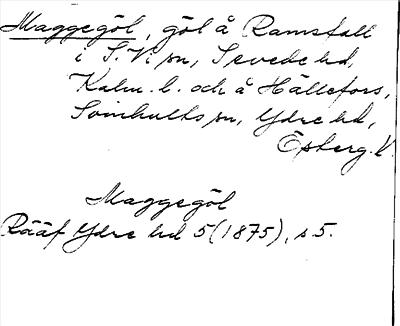 Maggegöl, göl å Ramsfall
i S. Vi sn, Sevede hd,
Kalm. l. och å Hällefors,
Svinhults sn, Ydre hd,
Österg. l.
Maggegöl
Rääf Ydre hd 5 (1875), s 5.